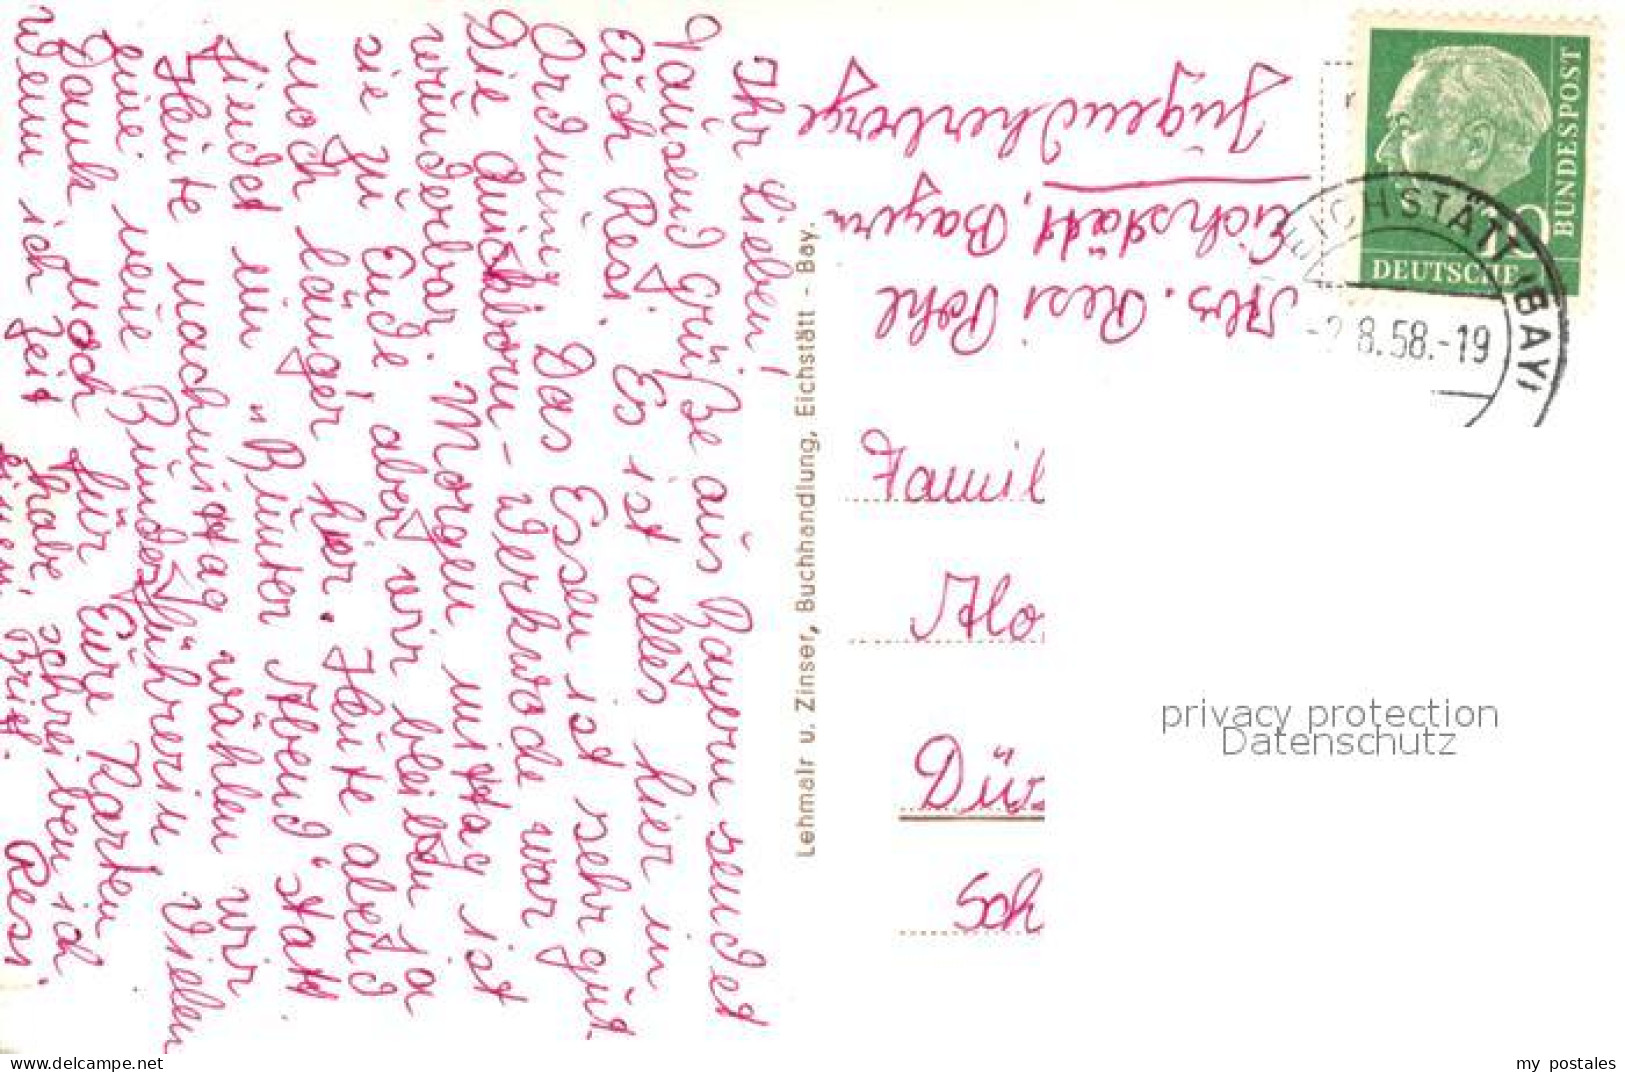 Ihr Lieben!
Tausend Grüße aus Bayern sendet
Euch Resi. Es ist alles hier in
Ordnung. Das Essen ist sehr gut.
Die Quickborn-Werkwoche war
wunderbar. Morgen mittag ist
sie zu Ende, aber wir bleiben ja
noch länger hier. Heute abend
findet ein "Bunter Abend" statt.
Heute nachmittag wählen wir
eine neue Bundesführerin. Vielen
Dank noch für Eure Karten.
Wenn ich Zeit habe, schreibe ich
einen Brief. Resi.
Lehmair u. Zinser, Buchhandlung, Eichstätt - Bay.
Abs. Resi Pohl
Eichstätt, Bayern
Jugendherberge
DEUTSCHE
BUNDESPOST
EICHSTÄTT (BAY)
8.58.-19
Famil
Alo
Dü
Sch
privacy protection
Datenschutz
wwww.delcampe.net
my postales